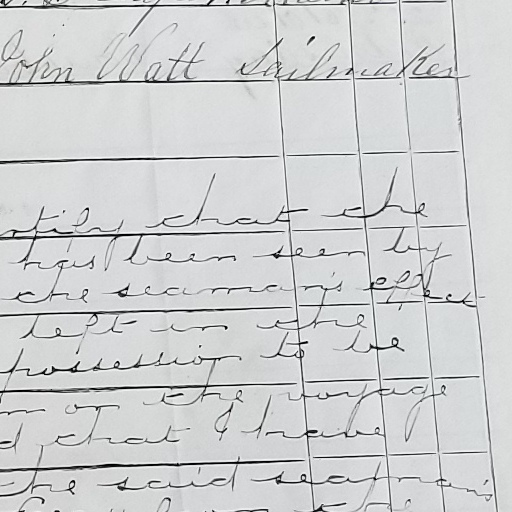 John Watt Sailmaker
rtify that the
has been seen by
the seaman's effect
left in the
possession to be
on the voyage
d that I have
the said seaman's